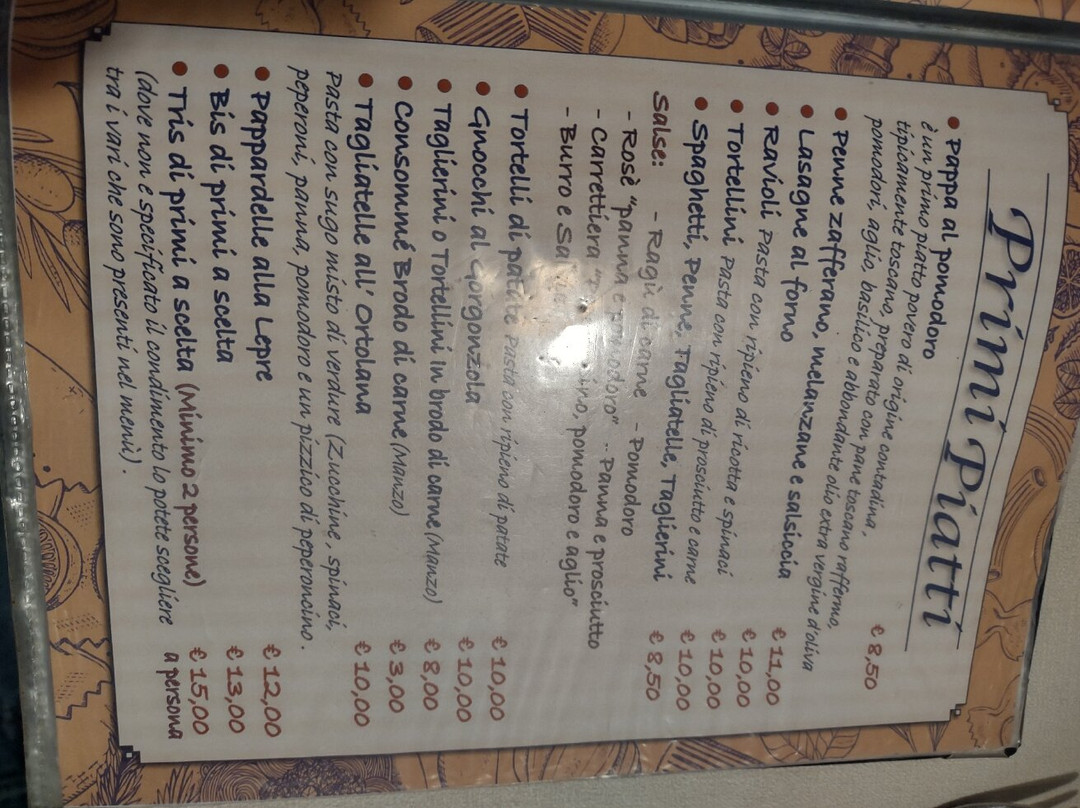 Primi Piatti
• Pappa al pomodoro
è un primo piatto povero di origine contadina,
tipicamente toscano, preparato con pane toscano rafferno,
pomodori, aglio, basilico e abbondante olio extra vergine d'oliva € 8,50
• Penne zafferano, melanzane e salsiccia € 11,00
• Lasagne al forno € 10,00
• Ravioli Pasta con ripieno di ricotta e spinaci € 10,00
• Tortellini Pasta con ripieno di prosciutto e carne € 10,00
• Spaghetti, Penne, Tagliatelle, Taglierini € 8,50
Salse: - Ragù di carne - Pomodoro
- Rosè "panna e pomodoro" - Panna e prosciutto
- Carrettiera pomodoro e aglio"
- Burro e
• Tortelli di patate Pasta con ripieno di patate € 10,00
• Gnocchi al Gorgonzola € 10,00
• Taglierini o Tortellini in brodo di carne (Manzo) € 8,00
• Consommé Brodo di carne (Manzo) € 3,00
• Tagliatelle all' Ortolana € 10,00
Pasta con sugo misto di verdure (Zucchine, spinaci,
peperoni, panna, pomodoro e un pizzico di peperoncino.
• Pappardelle alla Lepre € 12,00
• Bis di primi a scelta € 13,00
• Tris di primi a scelta (Minimo 2 persone) € 15,00
(dove non e specificato il condimento lo potete scegliere a persona
tra i vari che sono presenti nel menù).